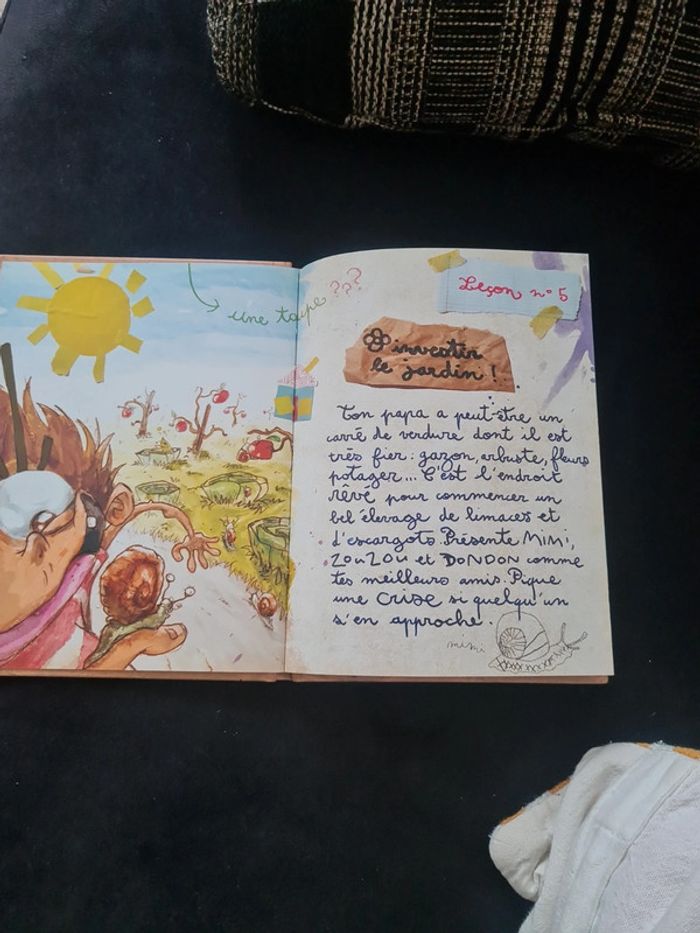 une taupe ???
Leçon n°5
investir
le jardin !
Ton papa a peut-être un
carré de verdure dont il est
très fier : gazon, arbuste, fleurs
potager... C'est l'endroit
rêvé pour commencer un
bel élevage de limaces et
d'escargots. Présente MiMi,
ZOUZOU et DONDON comme
tes meilleurs amis. Pique
une CRISE si quelqu'un
s'en approche.
mimi